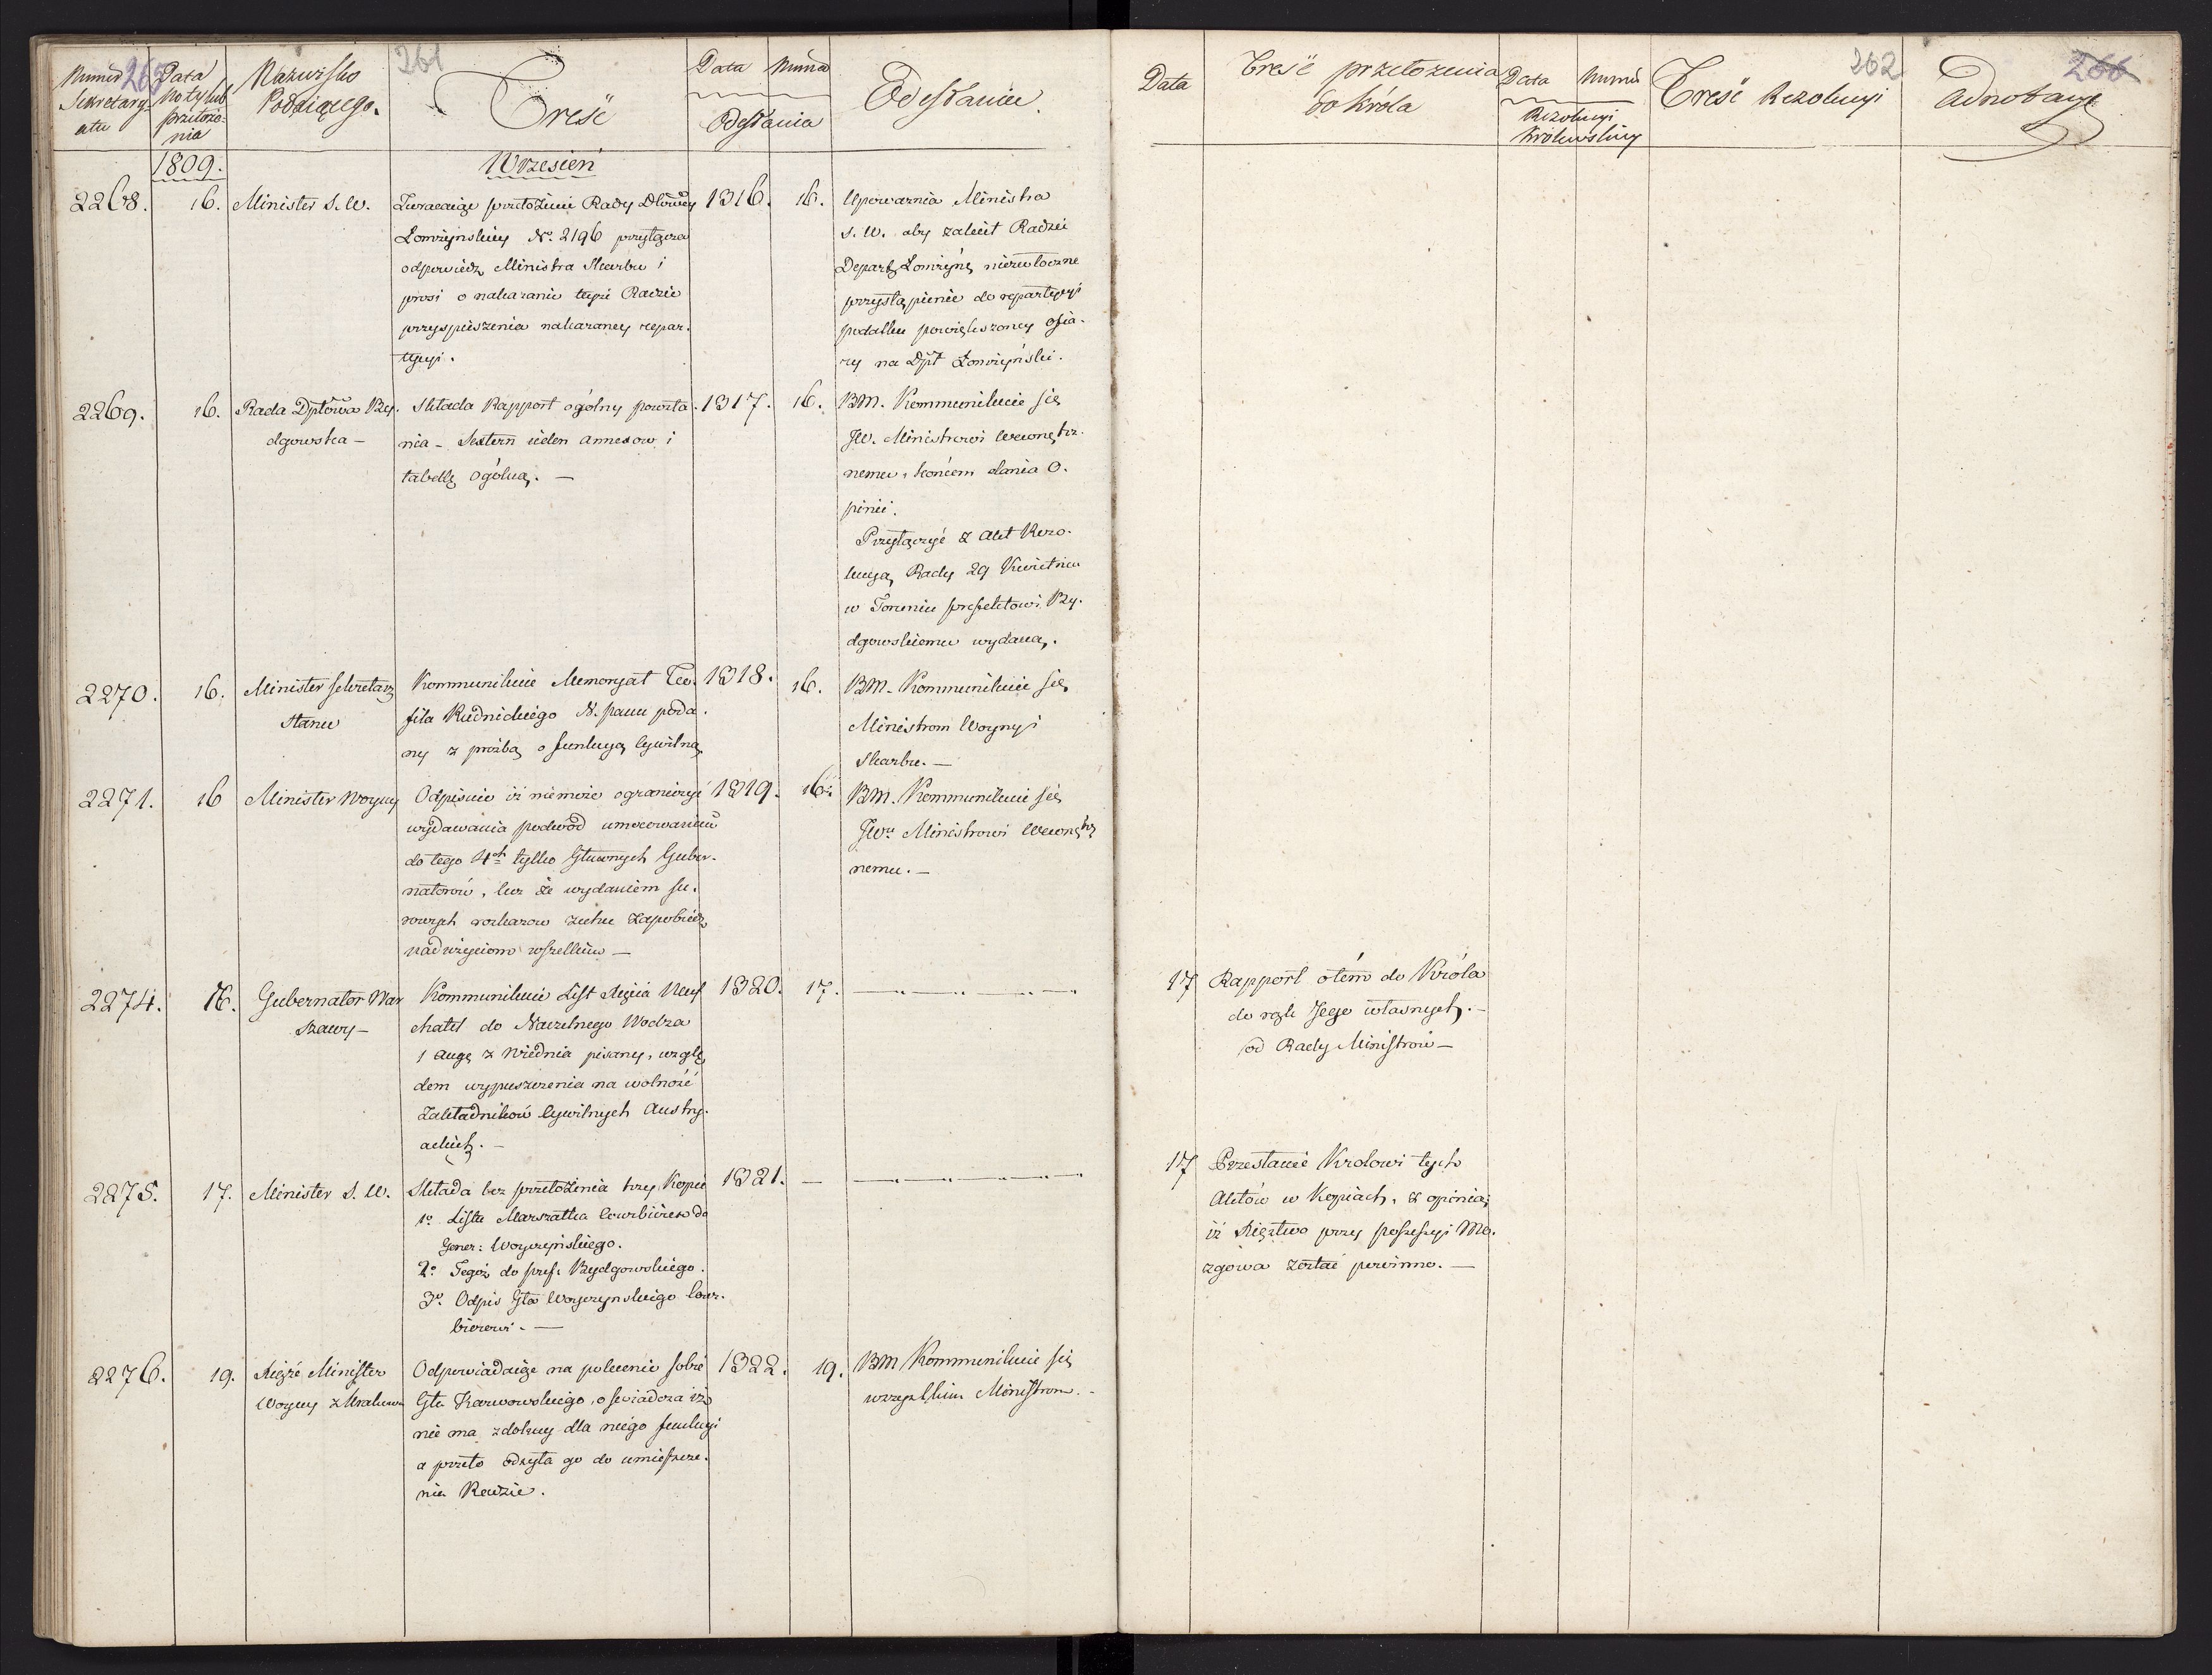 261
265
Numer
Sekretary
atu
Data
Noty lub
przełoże-
nia
Nazwisko
Podaiącego.
Treść
Data Numer
Odesłania
Odesłanie.
1809.
Wrzesień
2268. 16. Minister S. W.
Zwracaiąc przełożenie Rady Dłowey
Łomżyńskiey No. 2196 przyłącza
odpowiedź Ministra Skarbu i
prosi o nakazanie teyże Radzie
przyspieszenia nakazaney repar-
tycyi.
1316. 16.
Upoważnia Ministra
S. W. aby zalecił Radzie
Depart. Łomżyń. niezwłoczne
przystąpienie do repartycyi
podatku powiększoney ofia-
ry na Dpt Łomżyński.
2269. 16. Rada Dptowa By-
dgowska –
Składa Rapport ogólny powsta-
nia – Sextern ieden annexow i
tabellę ogólną. —
1317. 16.
BM. Kommunikuie się
JW. Ministrowi Wewnętrz-
nemu, końcem dania O-
pinii.
Przyłączyć z Akt Rezo-
lucyą Rady 29 Kwietnia
w Toruniu prefektowi By-
dgowskiemu wydaną.
2270. 16. Minister Sekretarz
Stanu
Kommunikuie Memoryał Teo-
fila Rudnickiego N. panu poda-
ny z prośbą o funkcyą Cywilną.
1318. 16.
BM. Kommunikuie się
Ministrom Woyny i
Skarbu. —
2271. 16 Minister Woyny
Odpisuie iż niemoże ograniczyć
wydawania podwód umocowaniem
do tego 4ch tylko Głównych Guber-
natorów, lecz że wydaniem su-
rowych rozkazow zechce zapobiedz
nadużyciom wszelkim —
1319. 16.
BM. Kommunikuie się
JWu Ministrowi Wewnętrz
nemu. —
2274. 16. Gubernator War
szawy –
Kommunikuie List Xięcia Neuf
chatel do Naczelnego Wodza
1 Aug. z Wiednia pisany, wzglę-
dem wypuszczenia na wolność
Zakładników Cywilnych Austry-
ackich. –
1320. 17.
2275. 17. Minister S. W.
Składa bez przełożenia trzy Kopie
1o. Listu Marszałka Cowbierew do
Gener: Woyczyńskiego.
2o. Tegoż do pref. Bydgowskiego.
3o. Odpis Gła Woyczyńskiego Cowr-
bierowi. —
1321. —
2276. 19. Xiąże Minister
Woyny z Krakowa
Odpowiadaiąc na polecenie sobie
Gła Karwowskiego, oświadcza iż
nie ma zdolney dla niego funkcyi
a przeto odsyła go do umieszcze-
nia Radzie.
1322. 19.
BM Kommunikuie się
wszystkim Ministrom. –
262
266
Data
Treść przełożenia
do Króla
Data Numer
Rezolucyi
Królewskiey
Treść Rezolucyi
Adnotacye
17 Rapport o tém do Króla
do rąk Jego własnych. –
od Rady Ministrow —
17 Przesłanie Krolowi tych
Aktów w Kopiach, z opinią
iż Xięztwo przy possessyi Mo-
zgowa zostać powinno. —